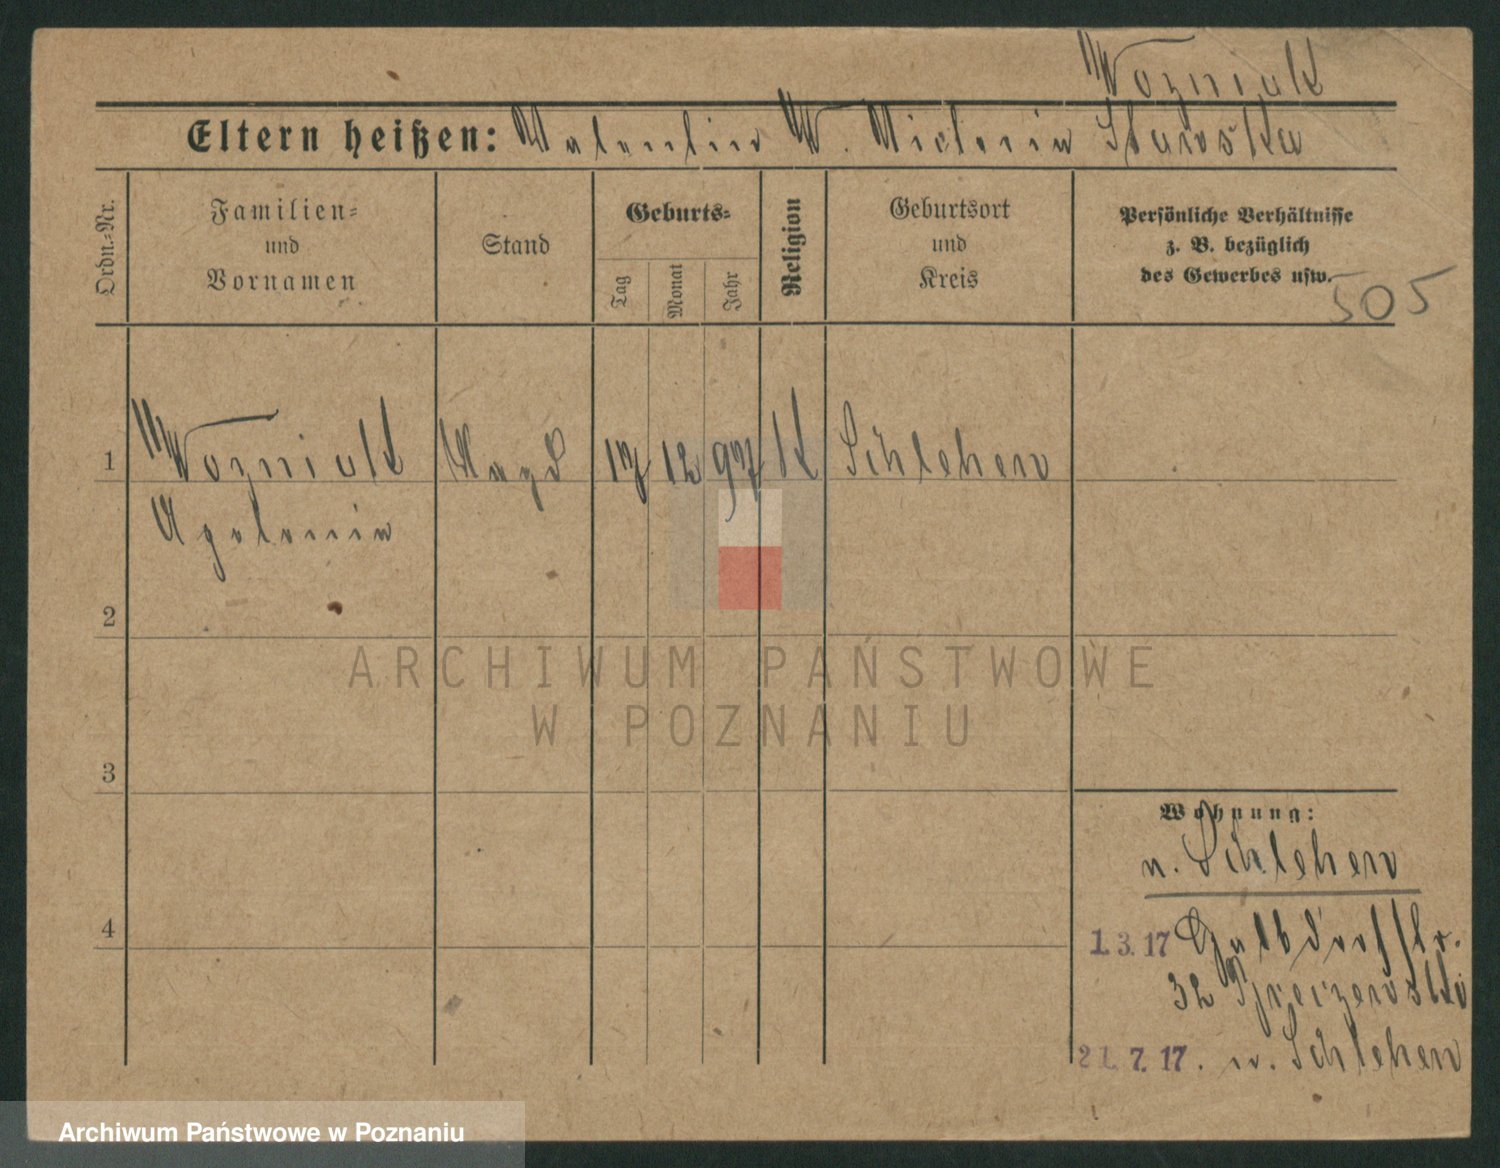 Wozniak
Eltern heißen: Valentin W. Victoria Staroska
Ordn.-Nr.
Familien-
und
Vornamen
Stand
Geburts-
Tag
Monat
Jahr
Religion
Geburtsort
und
Kreis
Persönliche Verhältnisse
z. B. bezüglich
des Gewerbes usw.
505
1 Wozniak Magd 17 12 97 K Schlehen
Apolonia
2
3
4
ARCHIWUM PAŃSTWOWE
W POZNANIU
Wohnung:
n. Schlehen
1.3.17
32
21.7.17. n. Schlehen
Archiwum Państwowe w Poznaniu